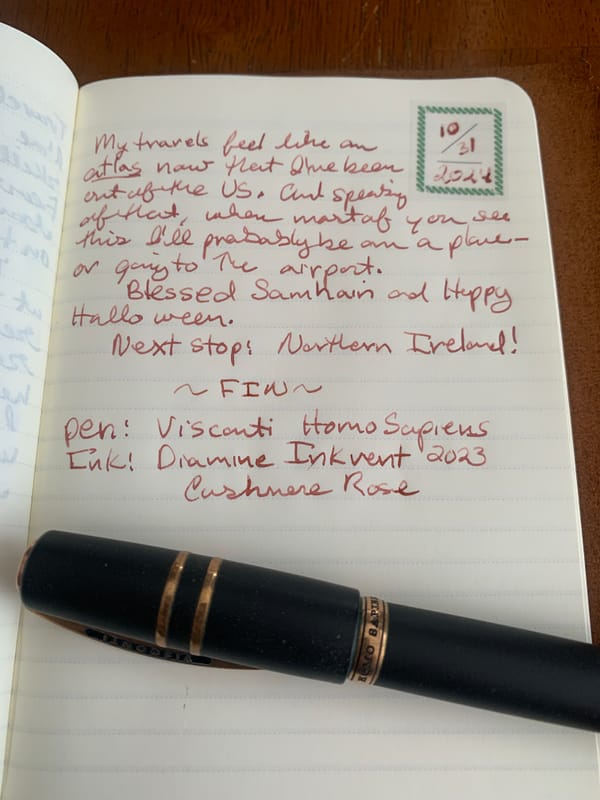 10
/
31
2024
My travels feel like an
atlas now that I've been
out of the US. And speaking
of that, when most of you see
this I'll probably be on a plane—
or going to the airport.
Blessed Samhain and Happy
Halloween.
Next stop: Northern Ireland!
~ FIN ~
pen: Visconti Homo Sapiens
Ink: Diamine Inkvent 2023
Cashmere Rose
HOMO SAPIEN